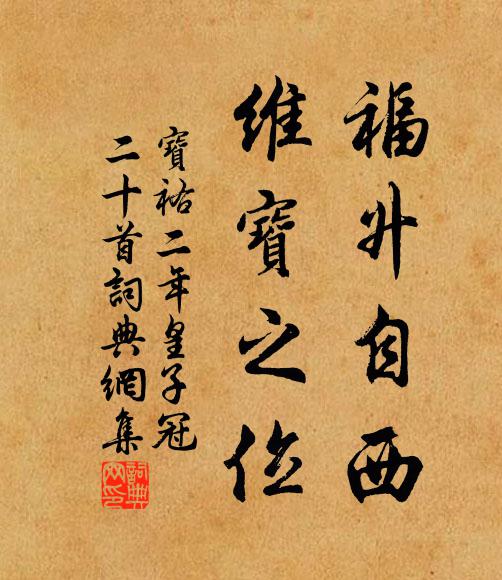 福升自西
維寶之位
寶祐二年皇子冠
二十首詞典網集
詞典
网印